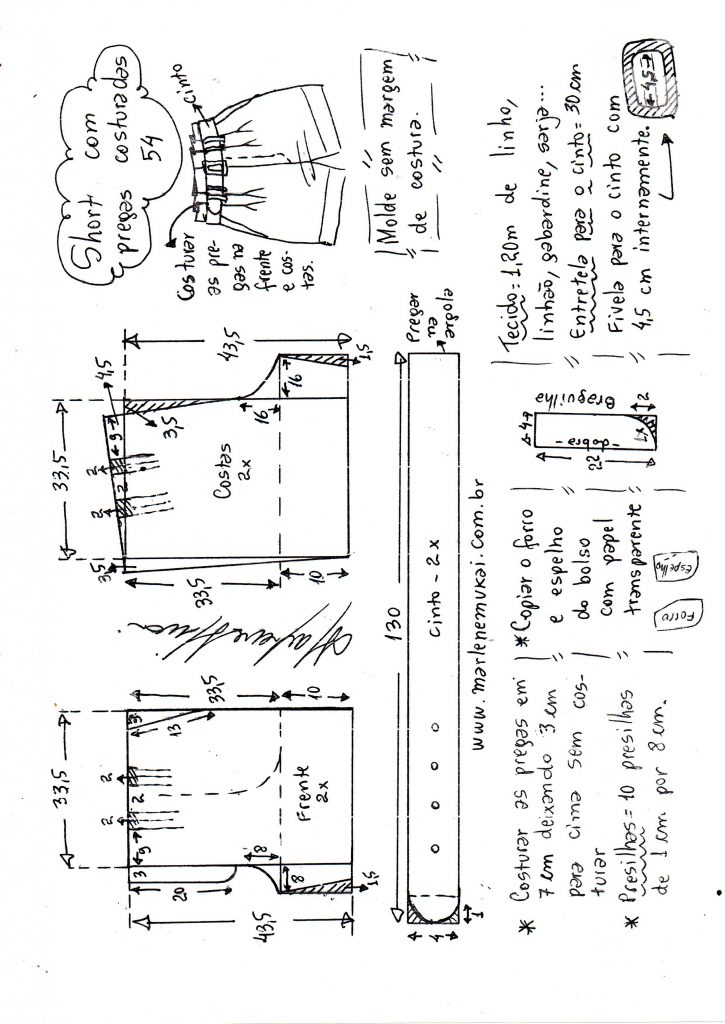 Short com
pregas costuradas
54
cinto
Costurar
as pre-
gas na
frente
e cos-
tas.
Molde sem margem
de costura.
43,5
33,5
4,5
3,5
2
2
2
9
3,5
16
16
1,5
Costas
2x
33,5
10
33,5
33,5
10
3
13
2
2
2
9
3
20
8
8
1,5
43,5
Frente
2x
130
Pregar
na
argola
cinto - 2x
4
4
1
www.marlenemukai.com.br
Tecido = 1,20m de linho,
linhão, gabardine, sarja...
Entretela para o cinto = 30 cm
Fivela para o cinto com
4,5 cm internamente.
4,5
Braguilha
4
22
-dobra-
1x
2
* Copiar o forro
e espelho
do bolso
com papel
transparente
Forro
Espelho
* Costurar as pregas em
7 cm deixando 3 cm
para cima sem cos-
turar
* Presilhas = 10 presilhas
de 1 cm por 8 cm.